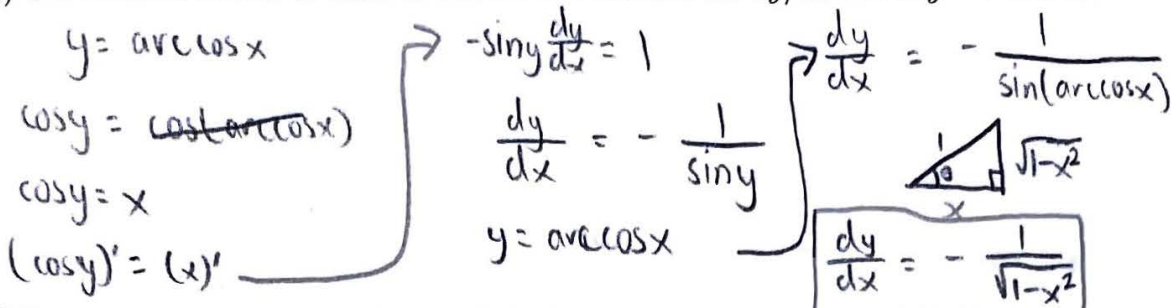 y = arccosx
cosy = cos(arccosx)
cosy = x
(cosy)' = (x)'
-siny dy/dx = 1
dy/dx = - 1/siny
y = arccosx
dy/dx = - 1/sin(arccosx)
1 θ √1-x²
x
dy/dx = - 1/√1-x²